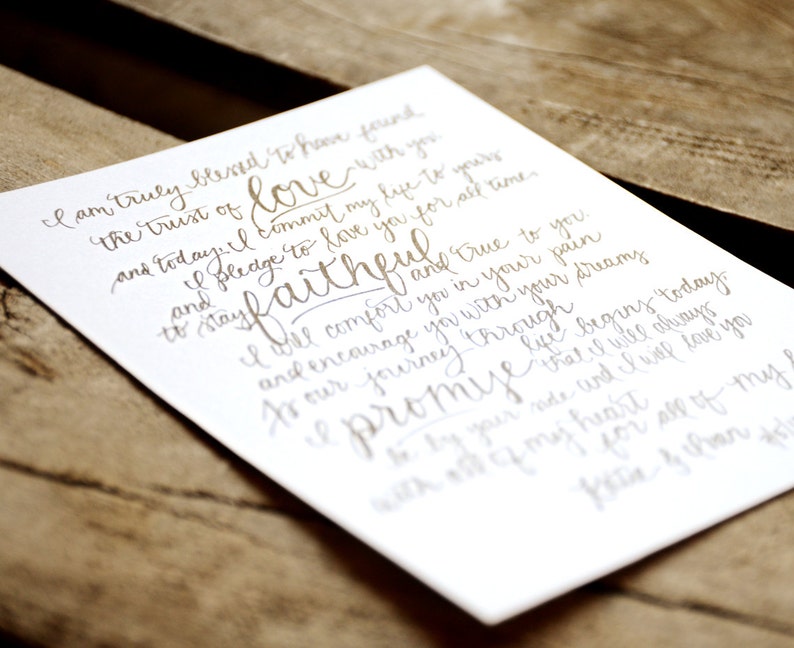 I am truly blessed to have found
the trust of love with you.
and today, I commit my life to yours
I pledge to love you for all time,
and
to stay faithful and true to you.
I will comfort you in your pain
and encourage you with your dreams
As our journey through life begins today
I promise that I will always
be by your side and I will love you
with all of my heart
for all of my
Katie &